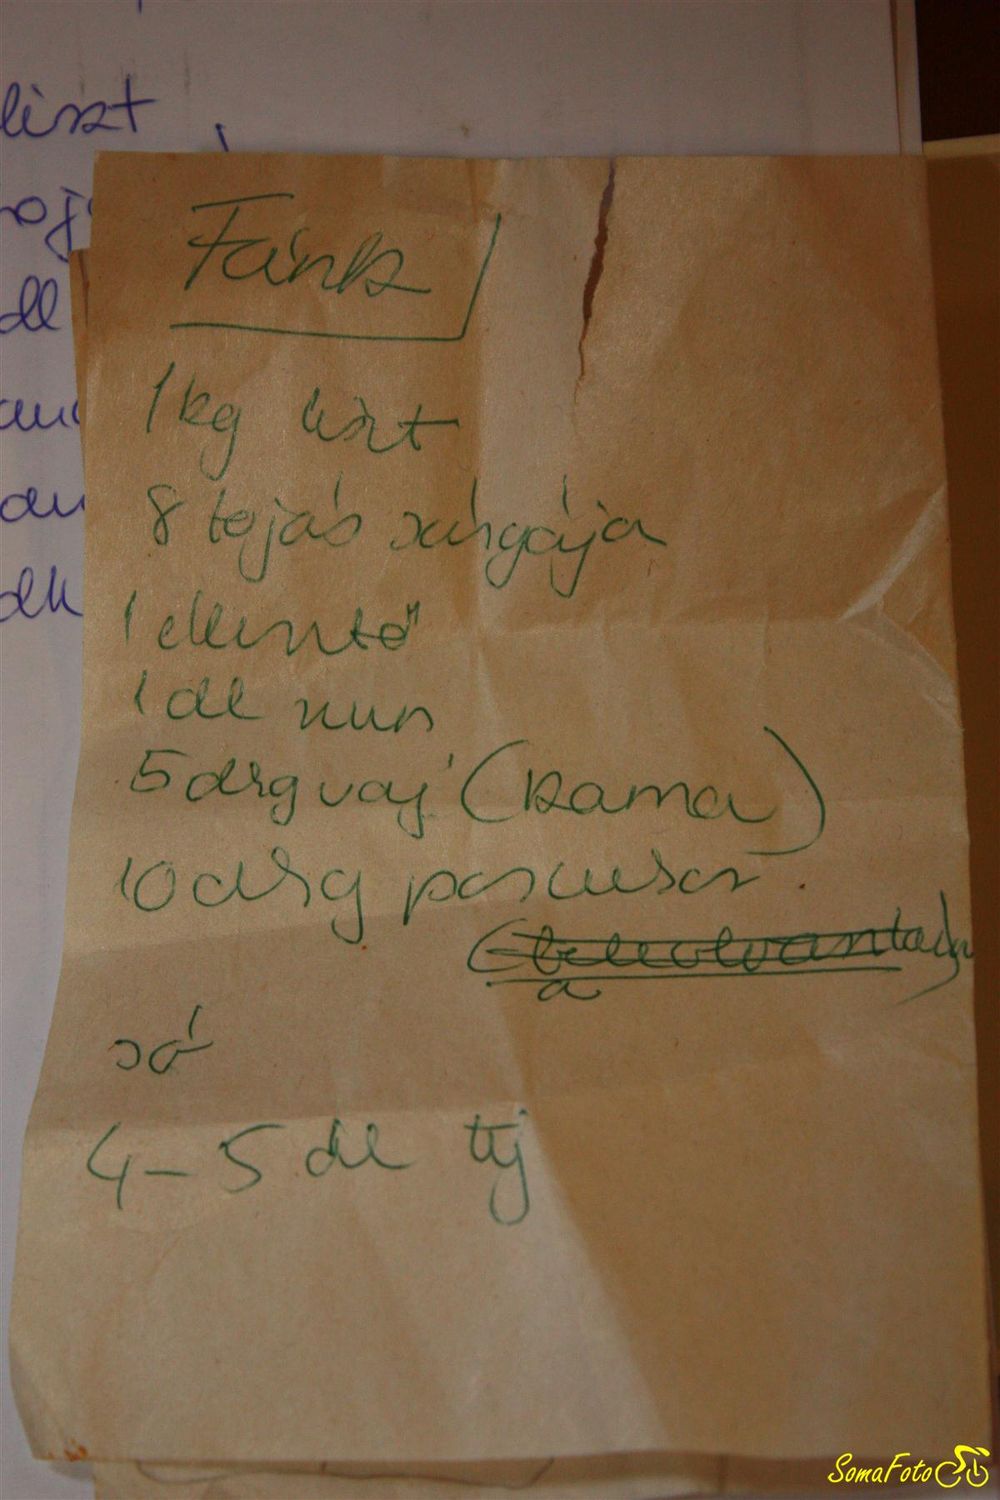 liszt
dl
dk
Fánk
1 kg liszt
8 tojás sárgája
1 élesztő
1 dl rum
5 dkg vaj (Rama)
10 dkg porcukor
só
4-5 dl tej
SomaFoto